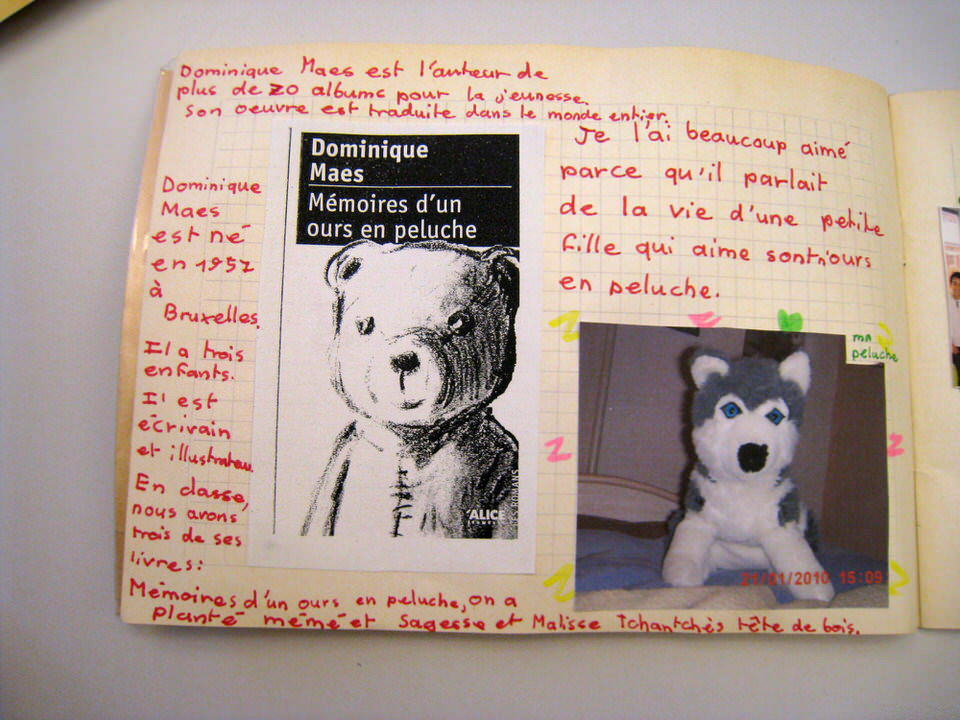 Dominique Maes est l'auteur de
plus de 20 albums pour la jeunesse.
son oeuvre est traduite dans le monde entier.
Dominique
Maes
est né
en 1957
à
Bruxelles.
Il a trois
enfants.
Il est
écrivain
et illustrateur.
En classe,
nous avons
trois de ses
livres:
Mémoires d'un ours en peluche, on a
planté mémé et Sagesse et Malisse Tchantchès tête de bois.
Dominique
Maes
Mémoires d'un
ours en peluche
ALICE
Je l'ai beaucoup aimé
parce qu'il parlait
de la vie d'une petite
fille qui aime sont n'ours
en peluche.
ma
peluche
21/01/2010 15:09